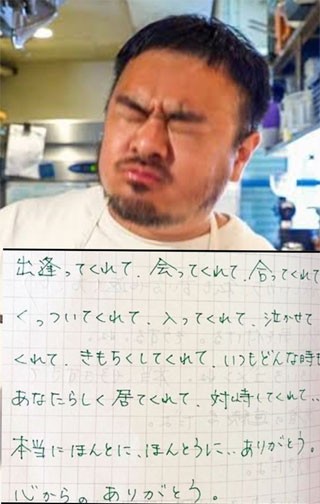 出逢ってくれて、会ってくれて、合ってくれて
くっついてくれて、入ってくれて、泣かせて
くれて、きもちくしてくれて、いつもどんな時も
あなたらしく居てくれて、対峙してくれて‥
本当にほんとに、ほんとうに‥ありがとう。
心からの ありがとう。